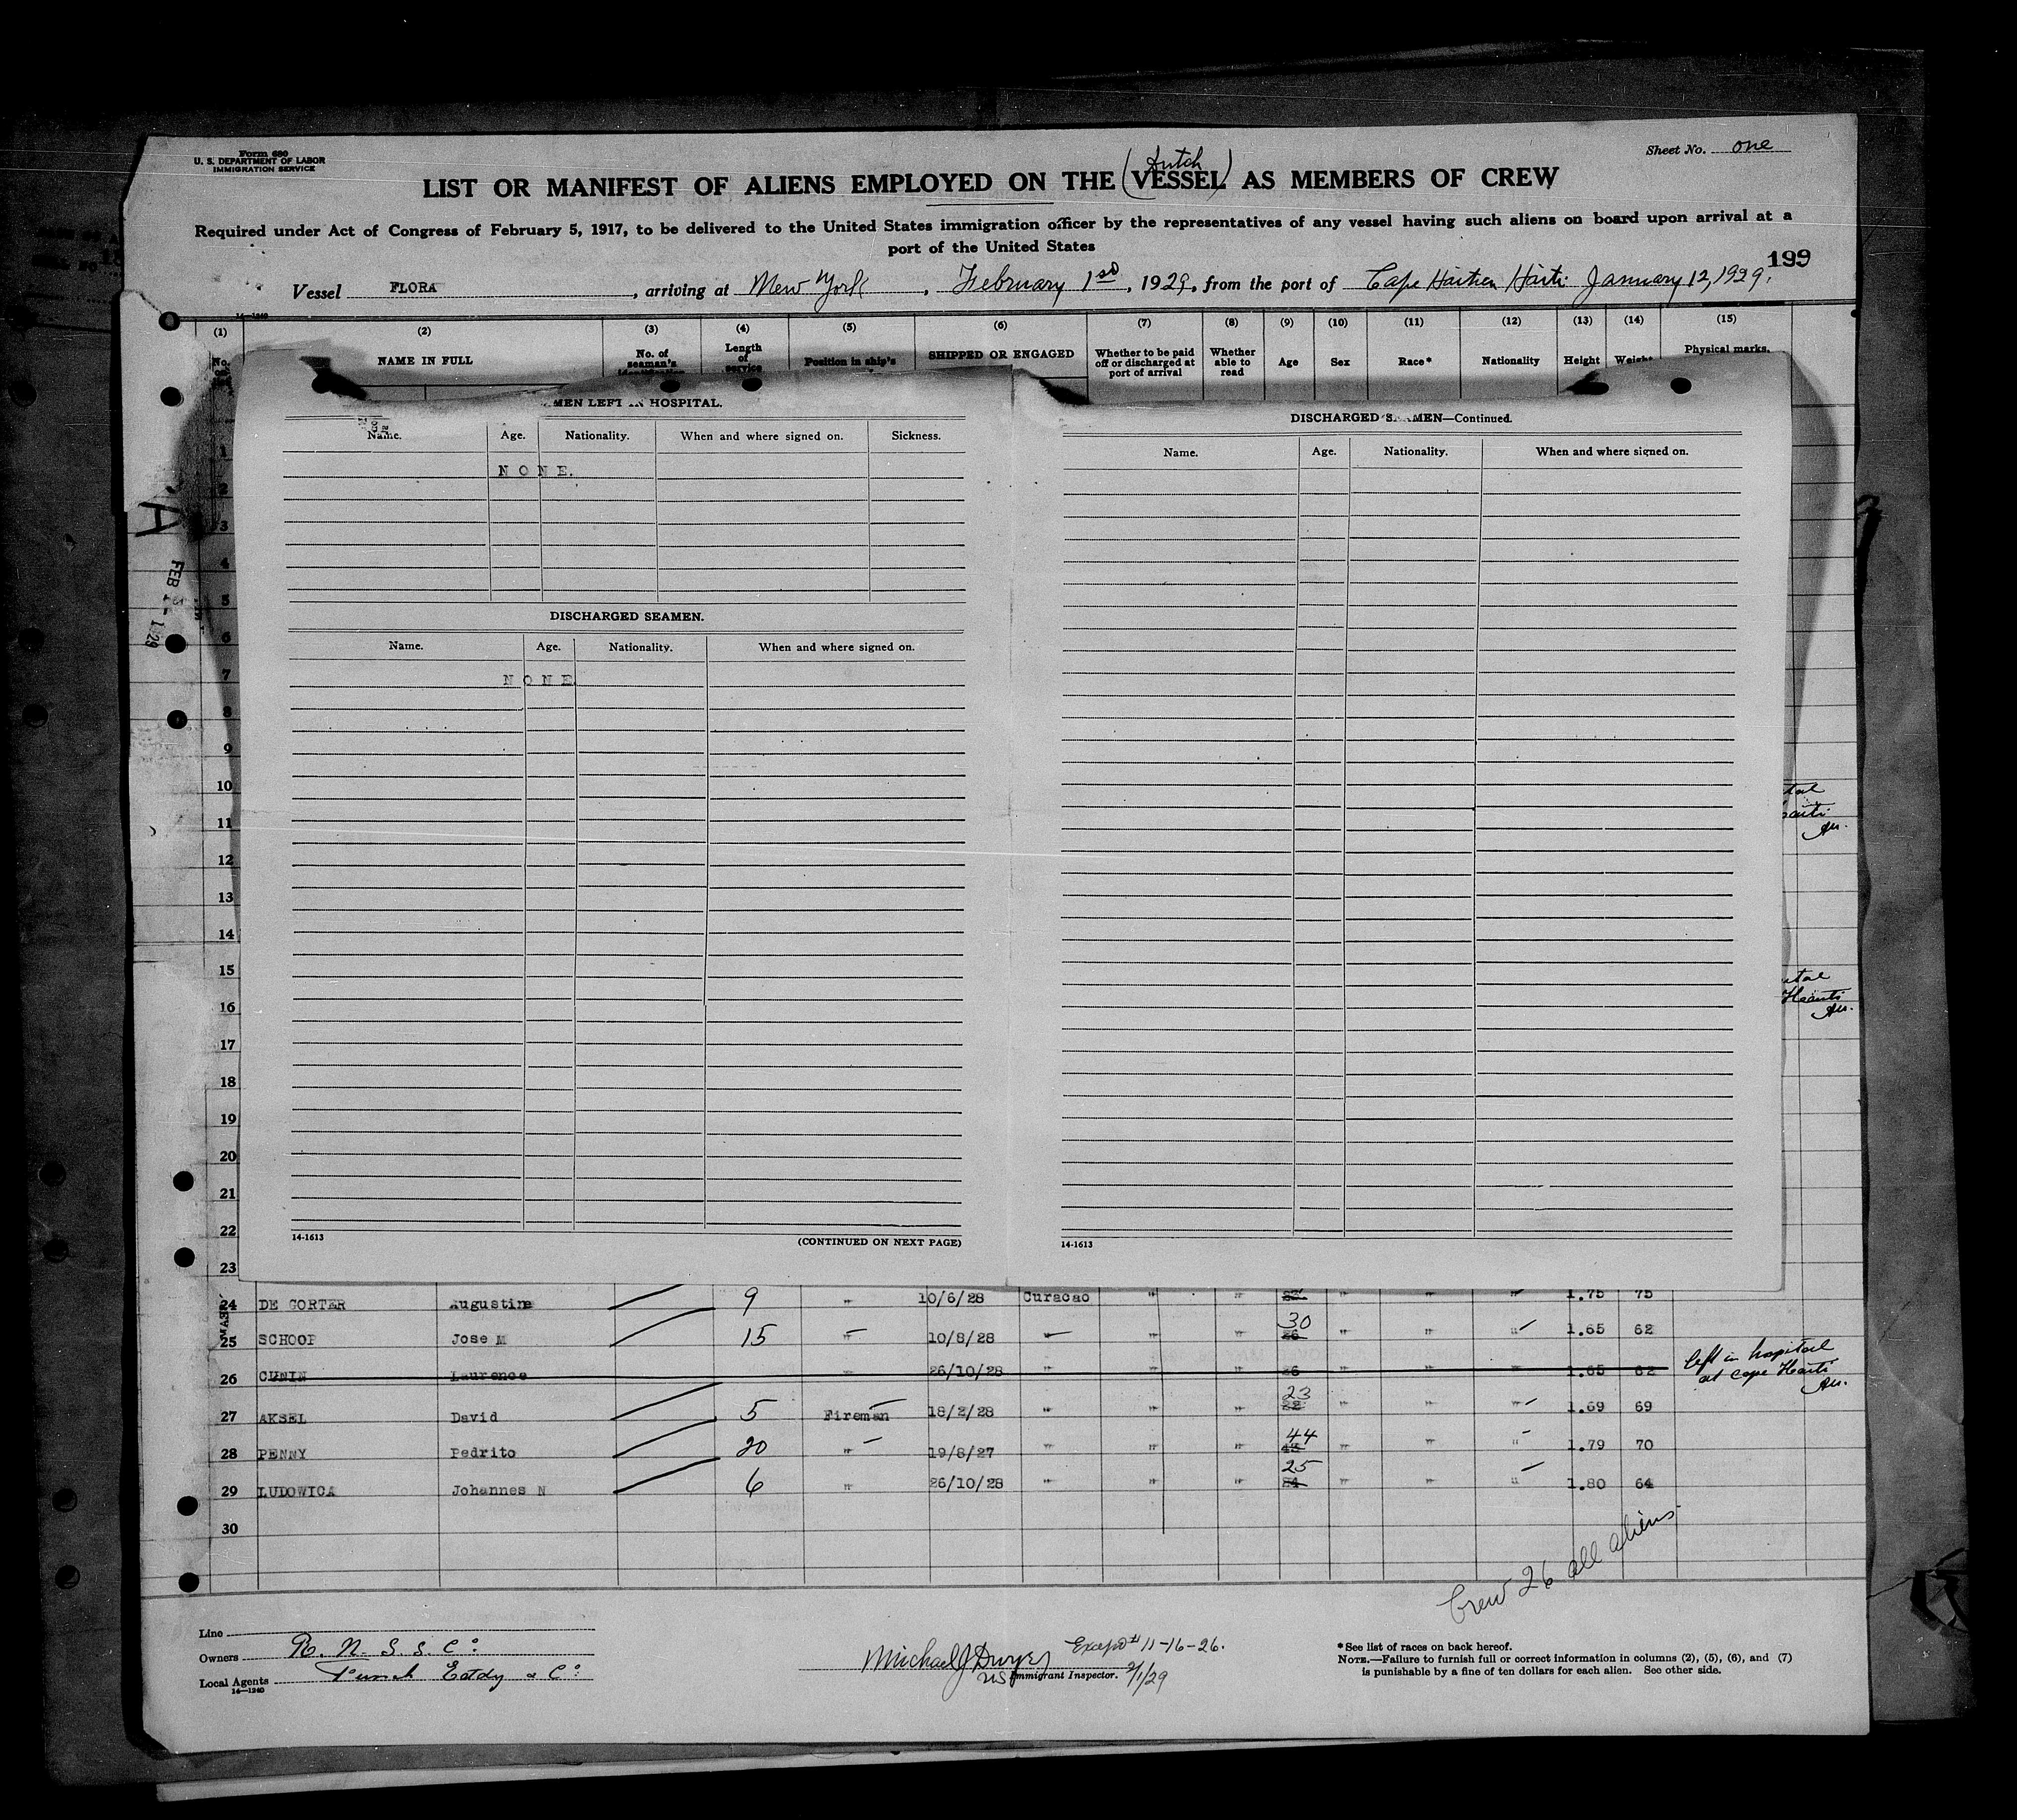 Form 680
U. S. DEPARTMENT OF LABOR
IMMIGRATION SERVICE
Sheet No. one
Dutch
LIST OR MANIFEST OF ALIENS EMPLOYED ON THE (VESSEL) AS MEMBERS OF CREW
Required under Act of Congress of February 5, 1917, to be delivered to the United States immigration officer by the representatives of any vessel having such aliens on board upon arrival at a
port of the United States
199
Vessel FLORA, arriving at New York, February 1st, 1929, from the port of Cape Haitien Haiti January 12, 1929.
14-1240
(1) (2) (3) (4) (5) (6) (7) (8) (9) (10) (11) (12) (13) (14) (15)
NAME IN FULL No. of seaman's Length of service Position in ship's SHIPPED OR ENGAGED Whether to be paid off or discharged at port of arrival Whether able to read Age Sex Race* Nationality Height Weight Physical marks,
MEN LEFT IN HOSPITAL.
Name. Age. Nationality. When and where signed on. Sickness.
NONE.
DISCHARGED SEAMEN.
Name. Age. Nationality. When and where signed on.
NONE
14-1613
(CONTINUED ON NEXT PAGE)
DISCHARGED SEAMEN—Continued.
Name. Age. Nationality. When and where signed on.
14-1613
A
FEB 1 - 1929
1
2
3
4
5
6
7
8
9
10
11
12
13
14
15
16
17
18
19
20
21
22
23
24 DE GORTER Augustine 9 " 10/6/28 Curacao " " " " " 1.75 75
25 SCHOOP Jose M 15 " 10/8/28 " " " 30 26 " " " 1.65 62
26 CUNIN Laurence " 26/10/28 " " " 26 " " " 1.65 62 left in hospital
at Cape Haiti
27 AKSEL David 5 Fireman 18/2/28 " " " 23 22 " " " 1.69 69
28 PENNY Pedrito 20 " 19/8/27 " " " 44 43 " " " 1.79 70
29 LUDOWICA Johannes N 6 " 26/10/28 " " " 25 24 " " " 1.80 64
30
Crew 26 all aliens
Line
Owners R. N. S. S. Co:
Local Agents Funch Eddy & Co:
14-1240
Michael J Dwyer Except # 11-16-26.
US Immigrant Inspector. 2/1/29
*See list of races on back hereof.
NOTE.—Failure to furnish full or correct information in columns (2), (5), (6), and (7)
is punishable by a fine of ten dollars for each alien. See other side.